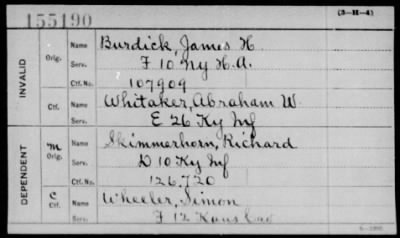 155190
(3-H-4)
INVALID
Orig.
Name Burdick, James H.
Serv. F 10 Ny H.A.
Ctf. No. 107909
Ctf.
Name Whitaker, Abraham W
Serv. E 26 Ky Inf
DEPENDENT
m
Orig.
Name Skimmerhorn, Richard
Serv. D 10 Ky Inf
Ctf. No. 126,720
C
Ctf.
Name Wheeler, Simon
Serv. F 12 Kans Cav